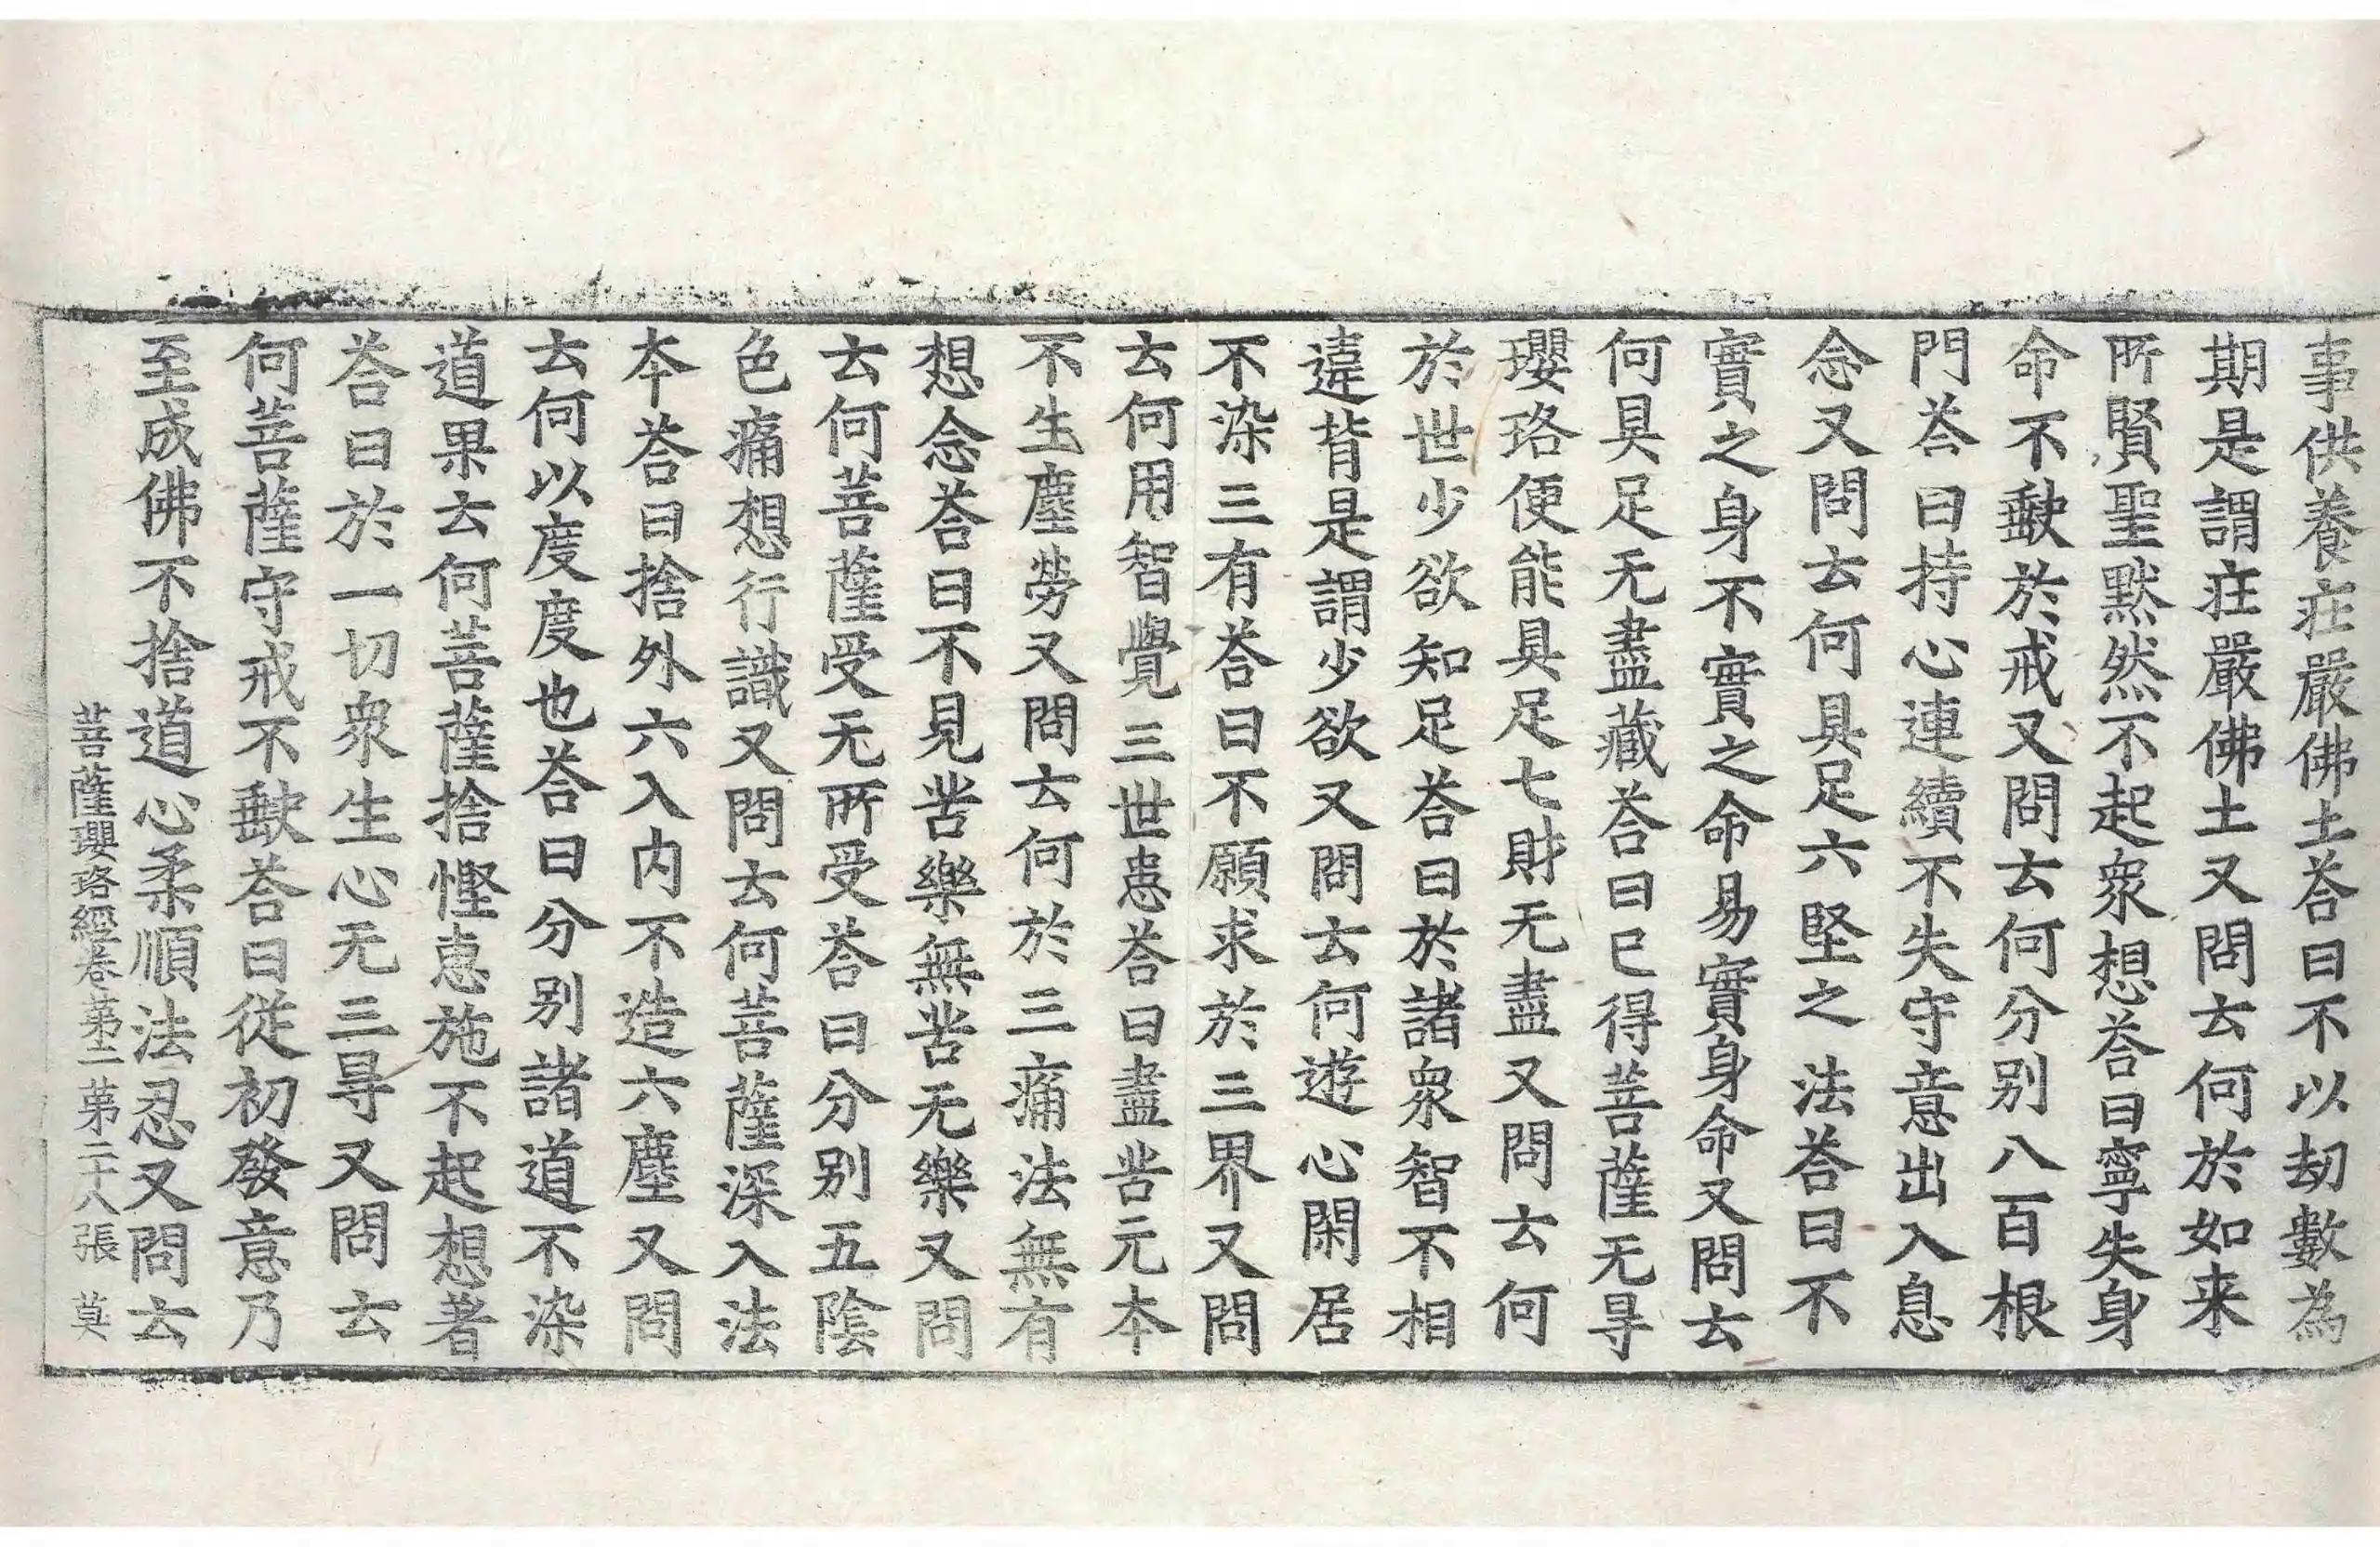 事供養疰嚴佛土荅曰不以劫數為
期是謂疰嚴佛土又問云何於如来
所賢聖黙然不起衆想荅曰寧失身
命不㱃於戒又問云何分别八百根
門荅曰持心連續不失守意出入息
念又問云何具足六堅之法荅曰不
實之身不實之命易實身命又問云
何具足无盡藏荅曰已得菩薩无㝵
瓔珞便能具足七財无盡又問云何
於世少欲知足荅曰於諸衆智不相
違背是謂少欲又問云何遊心閑居
不染三有荅曰不願求於三界又問
云何用智覺三世恚荅曰盡苦元本
不生塵勞又問云何於三痛法無有
想念荅曰不見苦樂無苦无樂又問
云何菩薩受无所受荅曰分别五陰
色痛想行識又問云何菩薩深入法
本荅曰捨外六入内不造六塵又問
云何以度度也荅曰分别諸道不染
道果云何菩薩捨慳惠施不起想著
荅曰於一切衆生心无三㝵又問云
何菩薩守戒不㱃荅曰從初發意乃
至成佛不捨道心柔順法忍又問云
菩薩瓔珞經卷第二 第二十八張 莫